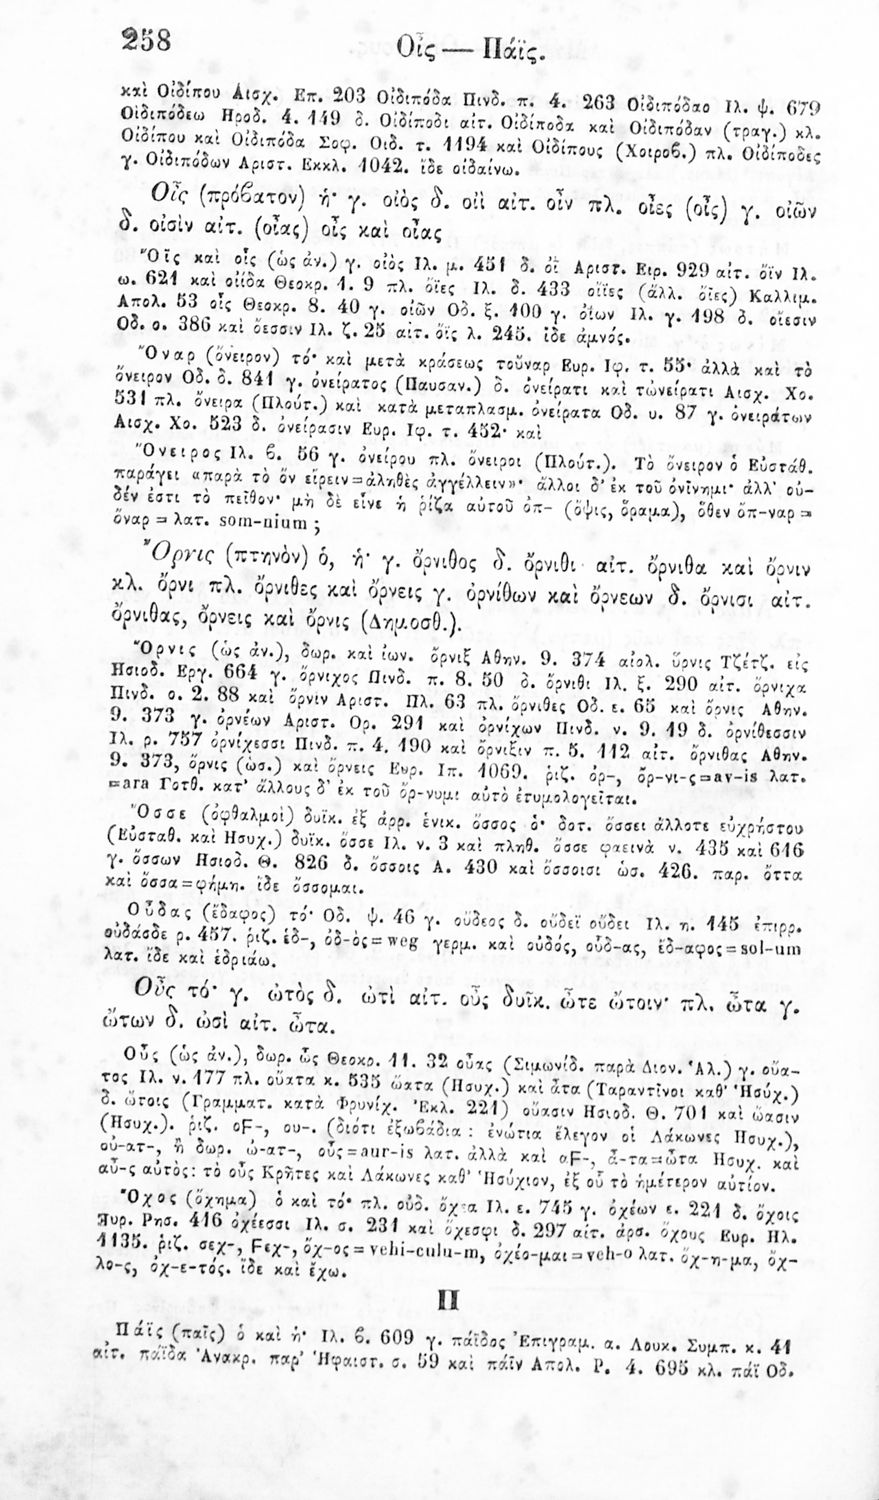 258
Οἶς — Πάϊς.
καὶ Οἰδίπου Αισχ. Επ. 203 Οἰδιπόδα Πινδ. π. 4. 263 Οἰδιπόδαο Ιλ. ψ. 679
Οἰδιπόδεω Ηροδ. 4. 149 δ. Οἰδίποδι αἰτ. Οἰδίποδα καὶ Οἰδιπόδαν (τραγ.) κλ.
Οἰδίπου καὶ Οἰδιπόδα Σοφ. Οιδ. τ. 1194 καὶ Οἰδίπους (Χοιροβ.) πλ. Οἰδίποδες
γ. Οἰδιπόδων Αριστ. Εκκλ. 1042. ἴδε οἰδαίνω.
Οἶς (πρόβατον) ἡ· γ. οἰὸς δ. οἰὶ αἰτ. οἶν πλ. οἶες (οἶς) γ. οἰῶν
δ. οἰσὶν αἰτ. (οἶας) οἶς καὶ οἶας
Ὄϊς καὶ οἶς (ὡς ἀν.) γ. οἰὸς Ιλ. μ. 451 δ. οἶϊ Αριστ. Ειρ. 929 αἰτ. ὄϊν Ιλ.
ω. 621 καὶ οἴϊδα Θεοκρ. 1. 9 πλ. ὄϊες Ιλ. δ. 433 οἴϊες (ἄλλ. ὄϊες) Καλλιμ.
Απολ. 53 οἶς Θεοκρ. 8. 40 γ. οἰῶν Οδ. ξ. 100 γ. ὀΐων Ιλ. γ. 198 δ. οἴεσιν
Οδ. ο. 386 καὶ ὄεσσιν Ιλ. ζ. 25 αἰτ. ὄϊς λ. 245. ἴδε ἀμνός.
Ὄναρ (ὄνειρον) τό· καὶ μετὰ κράσεως τοὔναρ Ευρ. Ιφ. τ. 55· ἀλλὰ καὶ τὸ
ὄνειρον Οδ. δ. 841 γ. ὀνείρατος (Παυσαν.) δ. ὀνείρατι καὶ τὠνείρατι Αισχ. Χο.
531 πλ. ὄνειρα (Πλούτ.) καὶ κατὰ μεταπλασμ. ὀνείρατα Οδ. υ. 87 γ. ὀνειράτων
Αισχ. Χο. 523 δ. ὀνείρασιν Ευρ. Ιφ. τ. 452· καὶ
Ὄνειρος Ιλ. β. 56 γ. ὀνείρου πλ. ὄνειροι (Πλούτ.). Τὸ ὄνειρον ὁ Εὐστάθ.
παράγει «παρὰ τὸ ὂν εἴρειν=ἀληθὲς ἀγγέλλειν»· ἄλλοι δ' ἐκ τοῦ ὀνίνημι· ἀλλ' οὐ-
δέν ἐστι τὸ πεῖθον· μὴ δὲ εἶνε ἡ ῥίζα αὐτοῦ ὀπ- (ὄψις, ὅραμα), ὅθεν ὄπ-ναρ =
ὄναρ = λατ. som-nium ;
Ὄρνις (πτηνὸν) ὁ, ἡ· γ. ὄρνιθος δ. ὄρνιθι αἰτ. ὄρνιθα καὶ ὄρνιν
κλ. ὄρνι πλ. ὄρνιθες καὶ ὄρνεις γ. ὀρνίθων καὶ ὄρνεων δ. ὄρνισι αἰτ.
ὄρνιθας, ὄρνεις καὶ ὄρνις (Δημοσθ.).
Ὄρνις (ὡς ἀν.), δωρ. καὶ ἰων. ὄρνιξ Αθην. 9. 374 αἰολ. ὔρνις Τζέτζ. εἰς
Ησιοδ. Εργ. 664 γ. ὄρνιχος Πινδ. π. 8. 50 δ. ὄρνιθι Ιλ. ξ. 290 αἰτ. ὄρνιχα
Πινδ. ο. 2. 88 καὶ ὄρνιν Αριστ. Πλ. 63 πλ. ὄρνιθες Οδ. ε. 65 καὶ ὄρνις Αθην.
9. 373 γ. ὀρνέων Αριστ. Ορ. 291 καὶ ὀρνίχων Πινδ. ν. 9. 19 δ. ὀρνίθεσσιν
Ιλ. ρ. 757 ὀρνίχεσσι Πινδ. π. 4. 190 καὶ ὄρνιξιν π. 5. 112 αἰτ. ὄρνιθας Αθην.
9. 373, ὄρνις (ὡσ.) καὶ ὄρνεις Ευρ. Ιπ. 1069. ῥιζ. ὀρ-, ὄρ-νι-ς=av-is λατ.
=ara Γοτθ. κατ' ἄλλους δ' ἐκ τοῦ ὄρ-νυμι αὐτὸ ἐτυμολογεῖται.
Ὄσσε (ὀφθαλμοὶ) δυϊκ. ἐξ ἀρρ. ἑνικ. ὄσσος ὁ· δοτ. ὄσσει ἄλλοτε εὐχρήστου
(Εὐσταθ. καὶ Ησυχ.) δυϊκ. ὄσσε Ιλ. ν. 3 καὶ πληθ. ὄσσε φαεινὰ ν. 435 καὶ 616
γ. ὄσσων Ησιοδ. Θ. 826 δ. ὄσσοις Α. 430 καὶ ὄσσοισι ὡσ. 426. παρ. ὄττα
καὶ ὄσσα=φήμη. ἴδε ὄσσομαι.
Οὖδας (ἔδαφος) τό· Οδ. ψ. 46 γ. οὔδεος δ. οὔδεϊ οὔδει Ιλ. η. 145 ἐπιρρ.
οὐδάσδε ρ. 457. ῥιζ. ἑδ-, ὁδ-ὸς=weg γερμ. καὶ οὐδός, οὖδ-ας, ἔδ-αφος=sol-um
λατ. ἴδε καὶ ἑδριάω.
Οὖς τό· γ. ὠτὸς δ. ὠτὶ αἰτ. οὖς δυϊκ. ὦτε ὤτοιν· πλ. ὦτα γ.
ὤτων δ. ὠσὶ αἰτ. ὦτα.
Οὖς (ὡς ἀν.), δωρ. ὦς Θεοκρ. 11. 32 οὖας (Σιμωνίδ. παρὰ Διον. Ἀλ.) γ. οὔα-
τος Ιλ. ν. 177 πλ. οὔατα κ. 535 ὤατα (Ησυχ.) καὶ ἆτα (Ταραντῖνοι καθ' Ἡσύχ.)
δ. ὤτοις (Γραμματ. κατὰ Φρυνίχ. Ἐκλ. 221) οὔασιν Ησιοδ. Θ. 701 καὶ ὤασιν
(Ησυχ.). ῥιζ. οϜ-, ου-. (διότι ἐξωβάδια : ἐνώτια ἔλεγον οἱ Λάκωνες Ησυχ.),
οὐ-ατ-, ἢ δωρ. ὠ-ατ-, οὖς=aur-is λατ. ἀλλὰ καὶ αϜ-, ἆ-τα=ὦτα Ησυχ. καὶ
αὖ-ς αὐτὸς: τὸ οὖς Κρῆτες καὶ Λάκωνες καθ' Ἡσύχιον, ἐξ οὗ τὸ ἡμέτερον αὐτίον.
Ὄχος (ὄχημα) ὁ καὶ τό· πλ. οὐδ. ὄχεα Ιλ. ε. 745 γ. ὀχέων ε. 221 δ. ὄχοις
Ευρ. Ρησ. 416 ὀχέεσσι Ιλ. σ. 231 καὶ ὄχεσφι δ. 297 αἰτ. ἀρσ. ὄχους Ευρ. Ηλ.
1135. ῥιζ. σεχ-, Ϝεχ-, ὄχ-ος=vehi-culu-m, ὀχέο-μαι=veh-o λατ. ὄχ-η-μα, ὄχ-
λο-ς, ὀχ-ε-τός. ἴδε καὶ ἔχω.
Π
Πάϊς (παῖς) ὁ καὶ ἡ· Ιλ. β. 609 γ. πάϊδος Ἐπιγραμ. α. Λουκ. Συμπ. κ. 41
αἰτ. πάϊδα Ἀνακρ. παρ' Ἡφαιστ. σ. 59 καὶ πάϊν Απολ. Ρ. 4. 695 κλ. πάϊ Οδ.